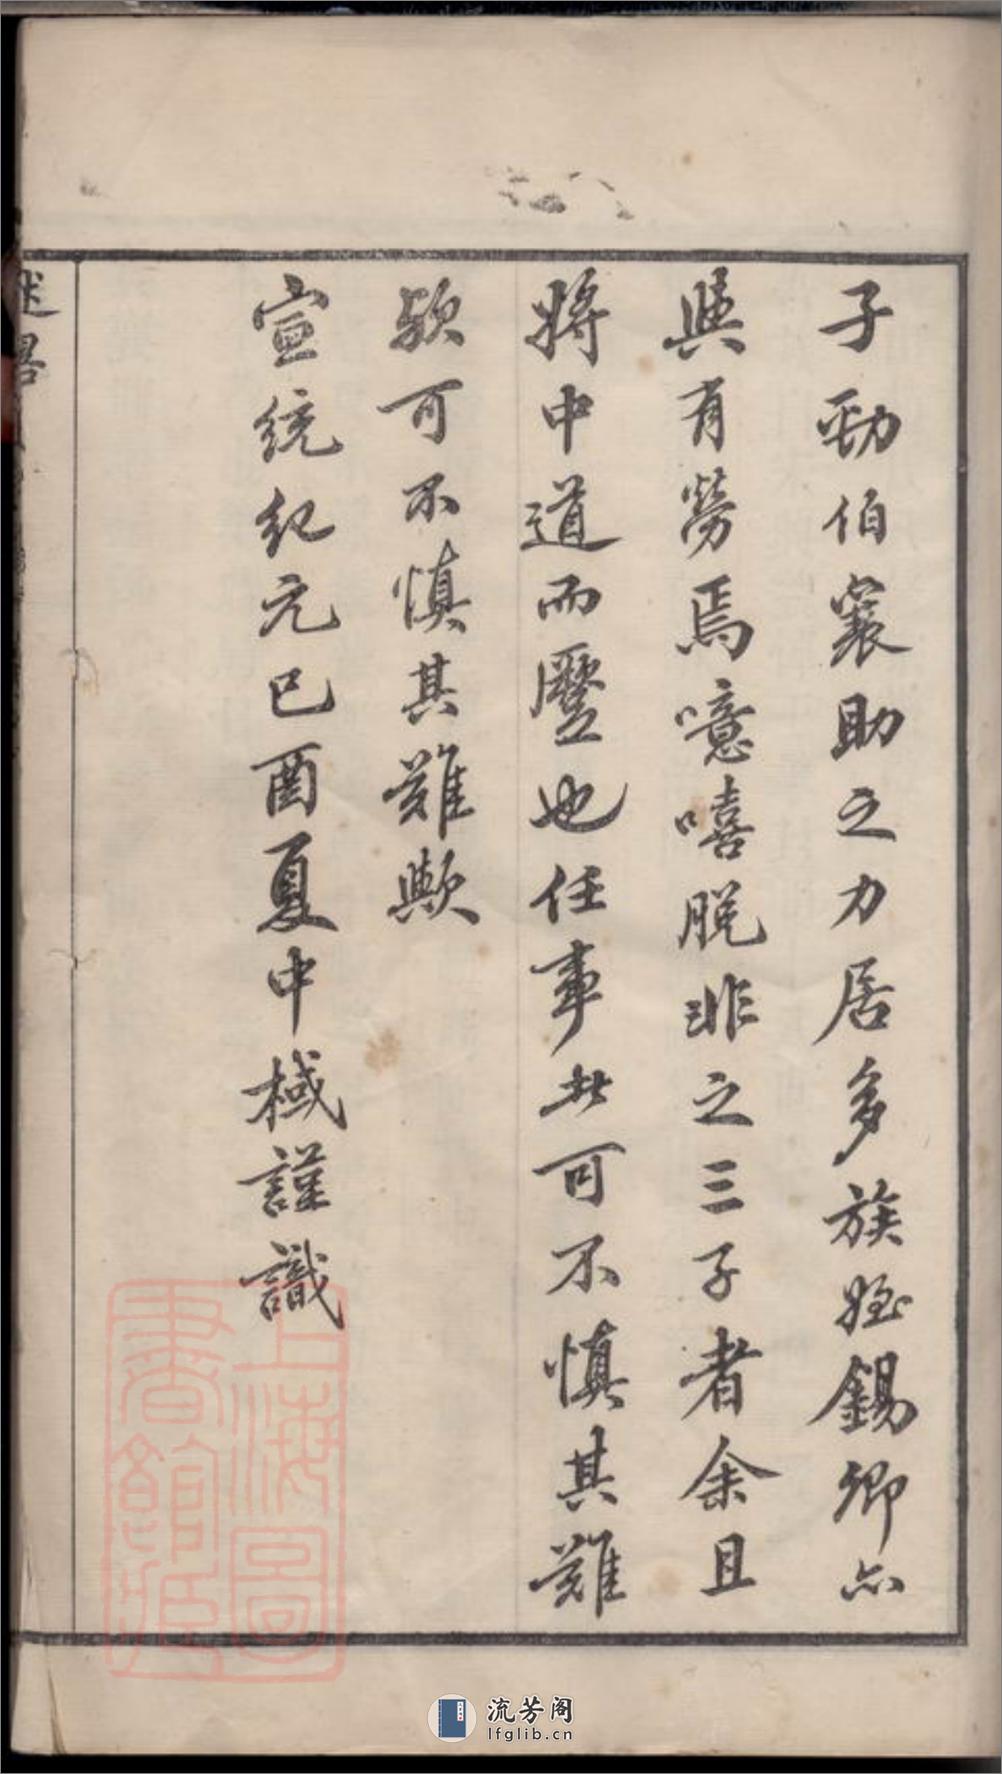 子勁伯襄助之力居多族姪錫卿亦
與有勞焉噫嘻脫非之三子者余且
將中道而也任事此可不慎其難
欤可不慎其難歟
宣統紀元己酉夏中棫謹識
述畧
上海圖
書館藏
流芳阁
lfglib.cn